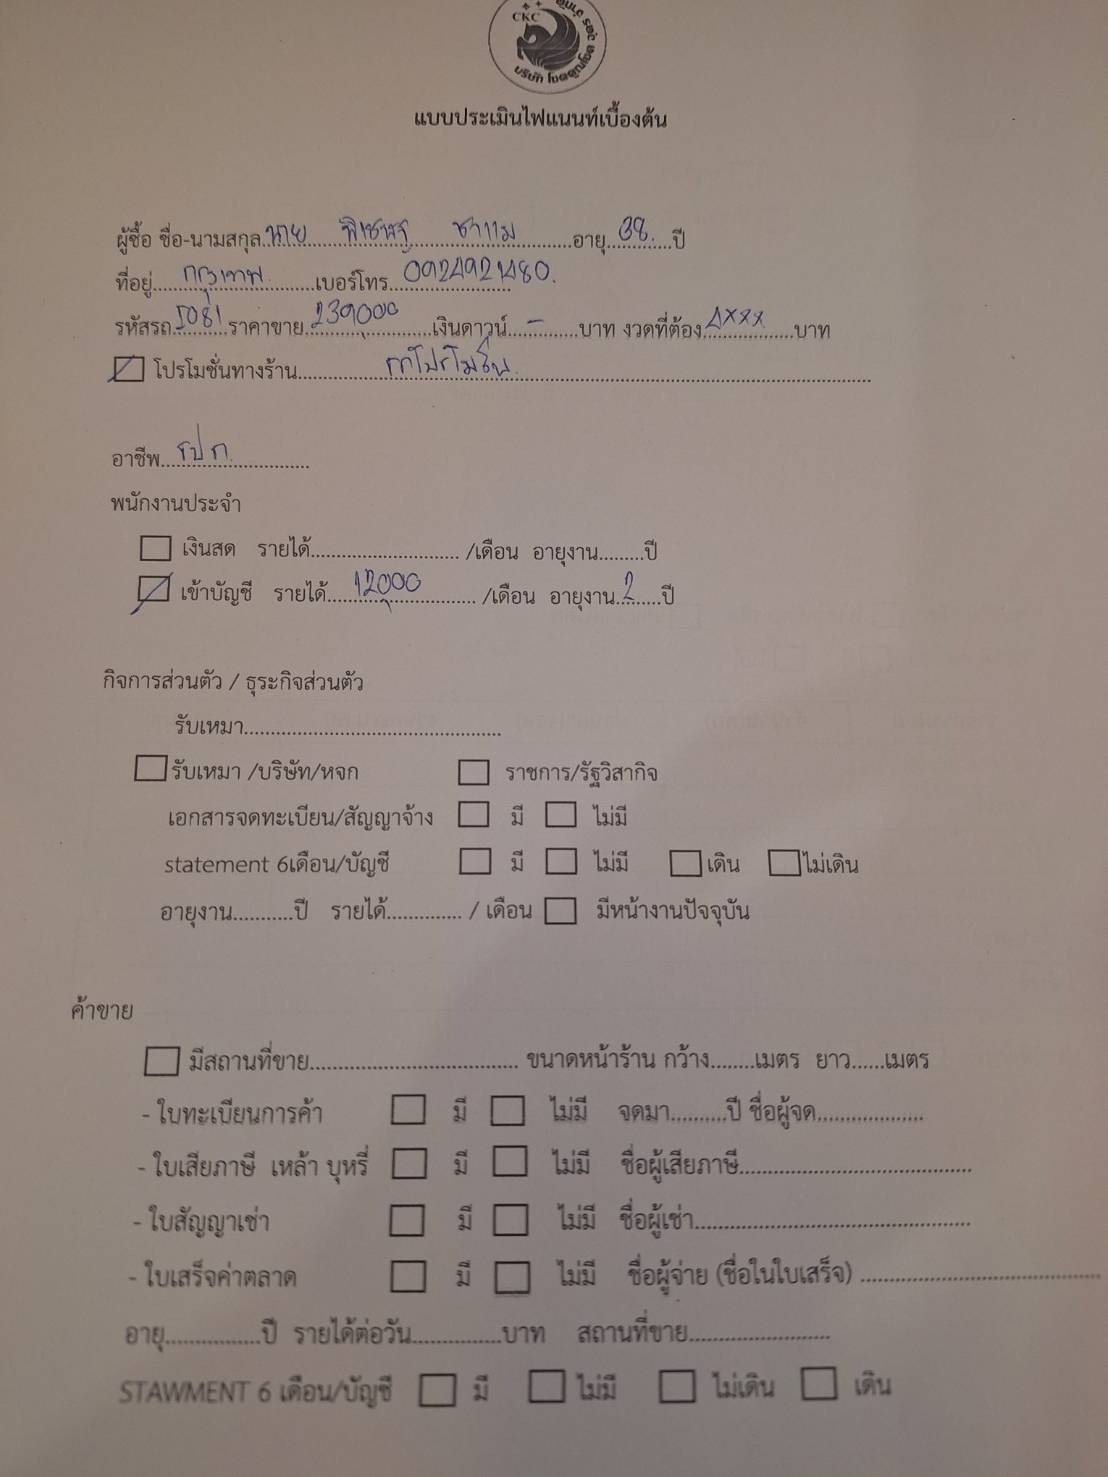 CKC
บริษัท โชคคูณโชค
แบบประเมินไฟแนนท์เบื้องต้น
ผู้ซื้อ ชื่อ-นามสกุล..นาย พิเชษฐ์ ชาแม......อายุ..38..ปี
ที่อยู่....กรุงเทพ......เบอร์โทร..0924921480.
รหัสรถ..5081..ราคาขาย..239000......เงินดาวน์...-......บาท งวดที่ต้อง..4xxx....บาท
โปรโมชั่นทางร้าน..............................
อาชีพ...รปภ..........
พนักงานประจำ
เงินสด รายได้.......................... /เดือน อายุงาน.........ปี
เข้าบัญชี รายได้.....12000.......... /เดือน อายุงาน..2....ปี
กิจการส่วนตัว / ธุระกิจส่วนตัว
รับเหมา..............................................
รับเหมา /บริษัท/หจก ราชการ/รัฐวิสากิจ
เอกสารจดทะเบียน/สัญญาจ้าง มี ไม่มี
statement 6เดือน/บัญชี มี ไม่มี เดิน ไม่เดิน
อายุงาน...........ปี รายได้.............. / เดือน มีหน้างานปัจจุบัน
ค้าขาย
มีสถานที่ขาย...................................... ขนาดหน้าร้าน กว้าง........เมตร ยาว......เมตร
- ใบทะเบียนการค้า มี ไม่มี จดมา..........ปี ชื่อผู้จด...................
- ใบเสียภาษี เหล้า บุหรี่ มี ไม่มี ชื่อผู้เสียภาษี..........................................
- ใบสัญญาเช่า มี ไม่มี ชื่อผู้เช่า..................................................
- ใบเสร็จค่าตลาด มี ไม่มี ชื่อผู้จ่าย (ชื่อในใบเสร็จ) ...........................................
อายุ.................ปี รายได้ต่อวัน................บาท สถานที่ขาย.........................
STAWMENT 6 เดือน/บัญชี มี ไม่มี ไม่เดิน เดิน